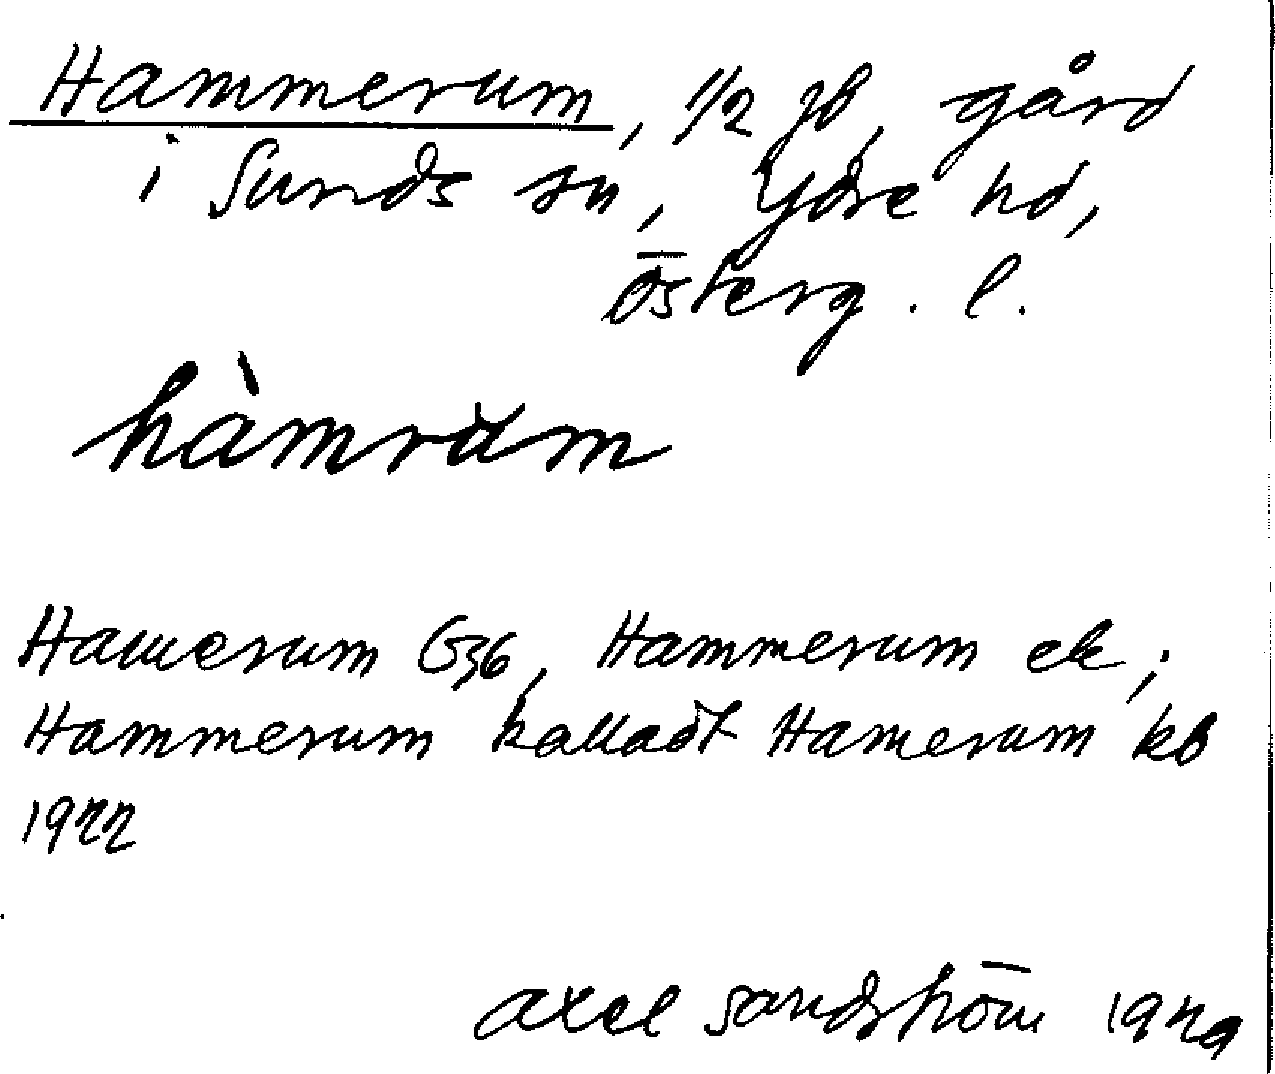 Hammerum, 1/2 jb, gård
i Sunds sn, Ydre hd,
Österg. l.
hàmrum
Hamerum G36, Hammerum ek;
Hammerum kalladt Hamerum kb
1922
Axel Sandström 1929